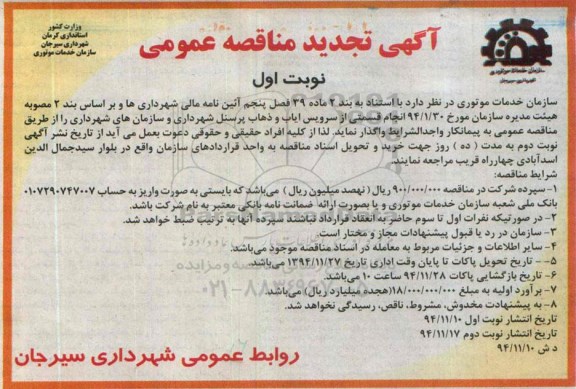 وزارت کشور
استانداری کرمان
شهرداری سیرجان
سازمان خدمات موتوری
آگهی تجدید مناقصه عمومی
سازمان خدمات موتوری
شهرداری سیرجان
نوبت اول
سازمان خدمات موتوری در نظر دارد با استناد به بند ۲ ماده ۳۹ فصل پنجم آئین نامه مالی شهرداری ها و بر اساس بند ۲ مصوبه
هیئت مدیره سازمان مورخ ۹۴/۱/۳۰ انجام قسمتی از سرویس ایاب و ذهاب پرسنل شهرداری و سازمان های شهرداری را از طریق
مناقصه عمومی به پیمانکار واجدالشرایط واگذار نماید. لذا از کلیه افراد حقیقی و حقوقی دعوت بعمل می آید از تاریخ نشر آگهی
نوبت دوم به مدت ( ده ) روز جهت خرید و تحویل اسناد مناقصه به واحد قراردادهای سازمان واقع در بلوار سیدجمال الدین
اسدآبادی چهارراه فریب مراجعه نمایند.
شرایط مناقصه:
۱- سپرده شرکت در مناقصه ۹۰۰/۰۰۰/۰۰۰ ریال ( نهصد میلیون ریال ) می‌باشد که بایستی به صورت واریز به حساب ۰۱۰۷۲۹۰۷۴۷۰۰۷
بانک ملی شعبه سازمان خدمات موتوری و یا بصورت ارائه ضمانت نامه بانکی معتبر به نام شرکت باشد.
۲- در صورتیکه نفرات اول تا سوم حاضر به انعقاد قرارداد نباشند سپرده آنها به ترتیب ضبط خواهد شد.
۳- سازمان در رد یا قبول پیشنهادات مجاز و مختار است.
۴- سایر اطلاعات و جزئیات مربوط به معامله در اسناد مناقصه موجود می‌باشد.
۵- تاریخ تحویل پاکات تا پایان وقت اداری تاریخ ۱۳۹۴/۱۱/۲۷ می‌باشد.
۶- تاریخ بازگشایی پاکات ۹۴/۱۱/۲۸ ساعت ۱۰ می‌باشد.
۷- برآورد اولیه به مبلغ ۱۸/۰۰۰/۰۰۰/۰۰۰(هجده میلیارد ریال) می‌باشد.
۸- به پیشنهادت مخدوش، مشروط، ناقص، رسیدگی نخواهد شد.
تاریخ انتشار نوبت اول ۹۴/۱۱/۱۰
تاریخ انتشار نوبت دوم ۹۴/۱۱/۱۷
د ش ۹۴/۱۱/۱۰
روابط عمومی شهرداری سیرجان
۰۲۱-۸۸۳۴۹۶۷۰